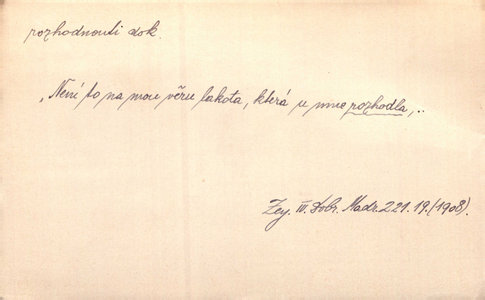 rozhodnouti dok.
„Není to na mou věru lakota, která u mne rozhodla,..
Zey. III. Dobr. Madr. 221. 19. (1908).